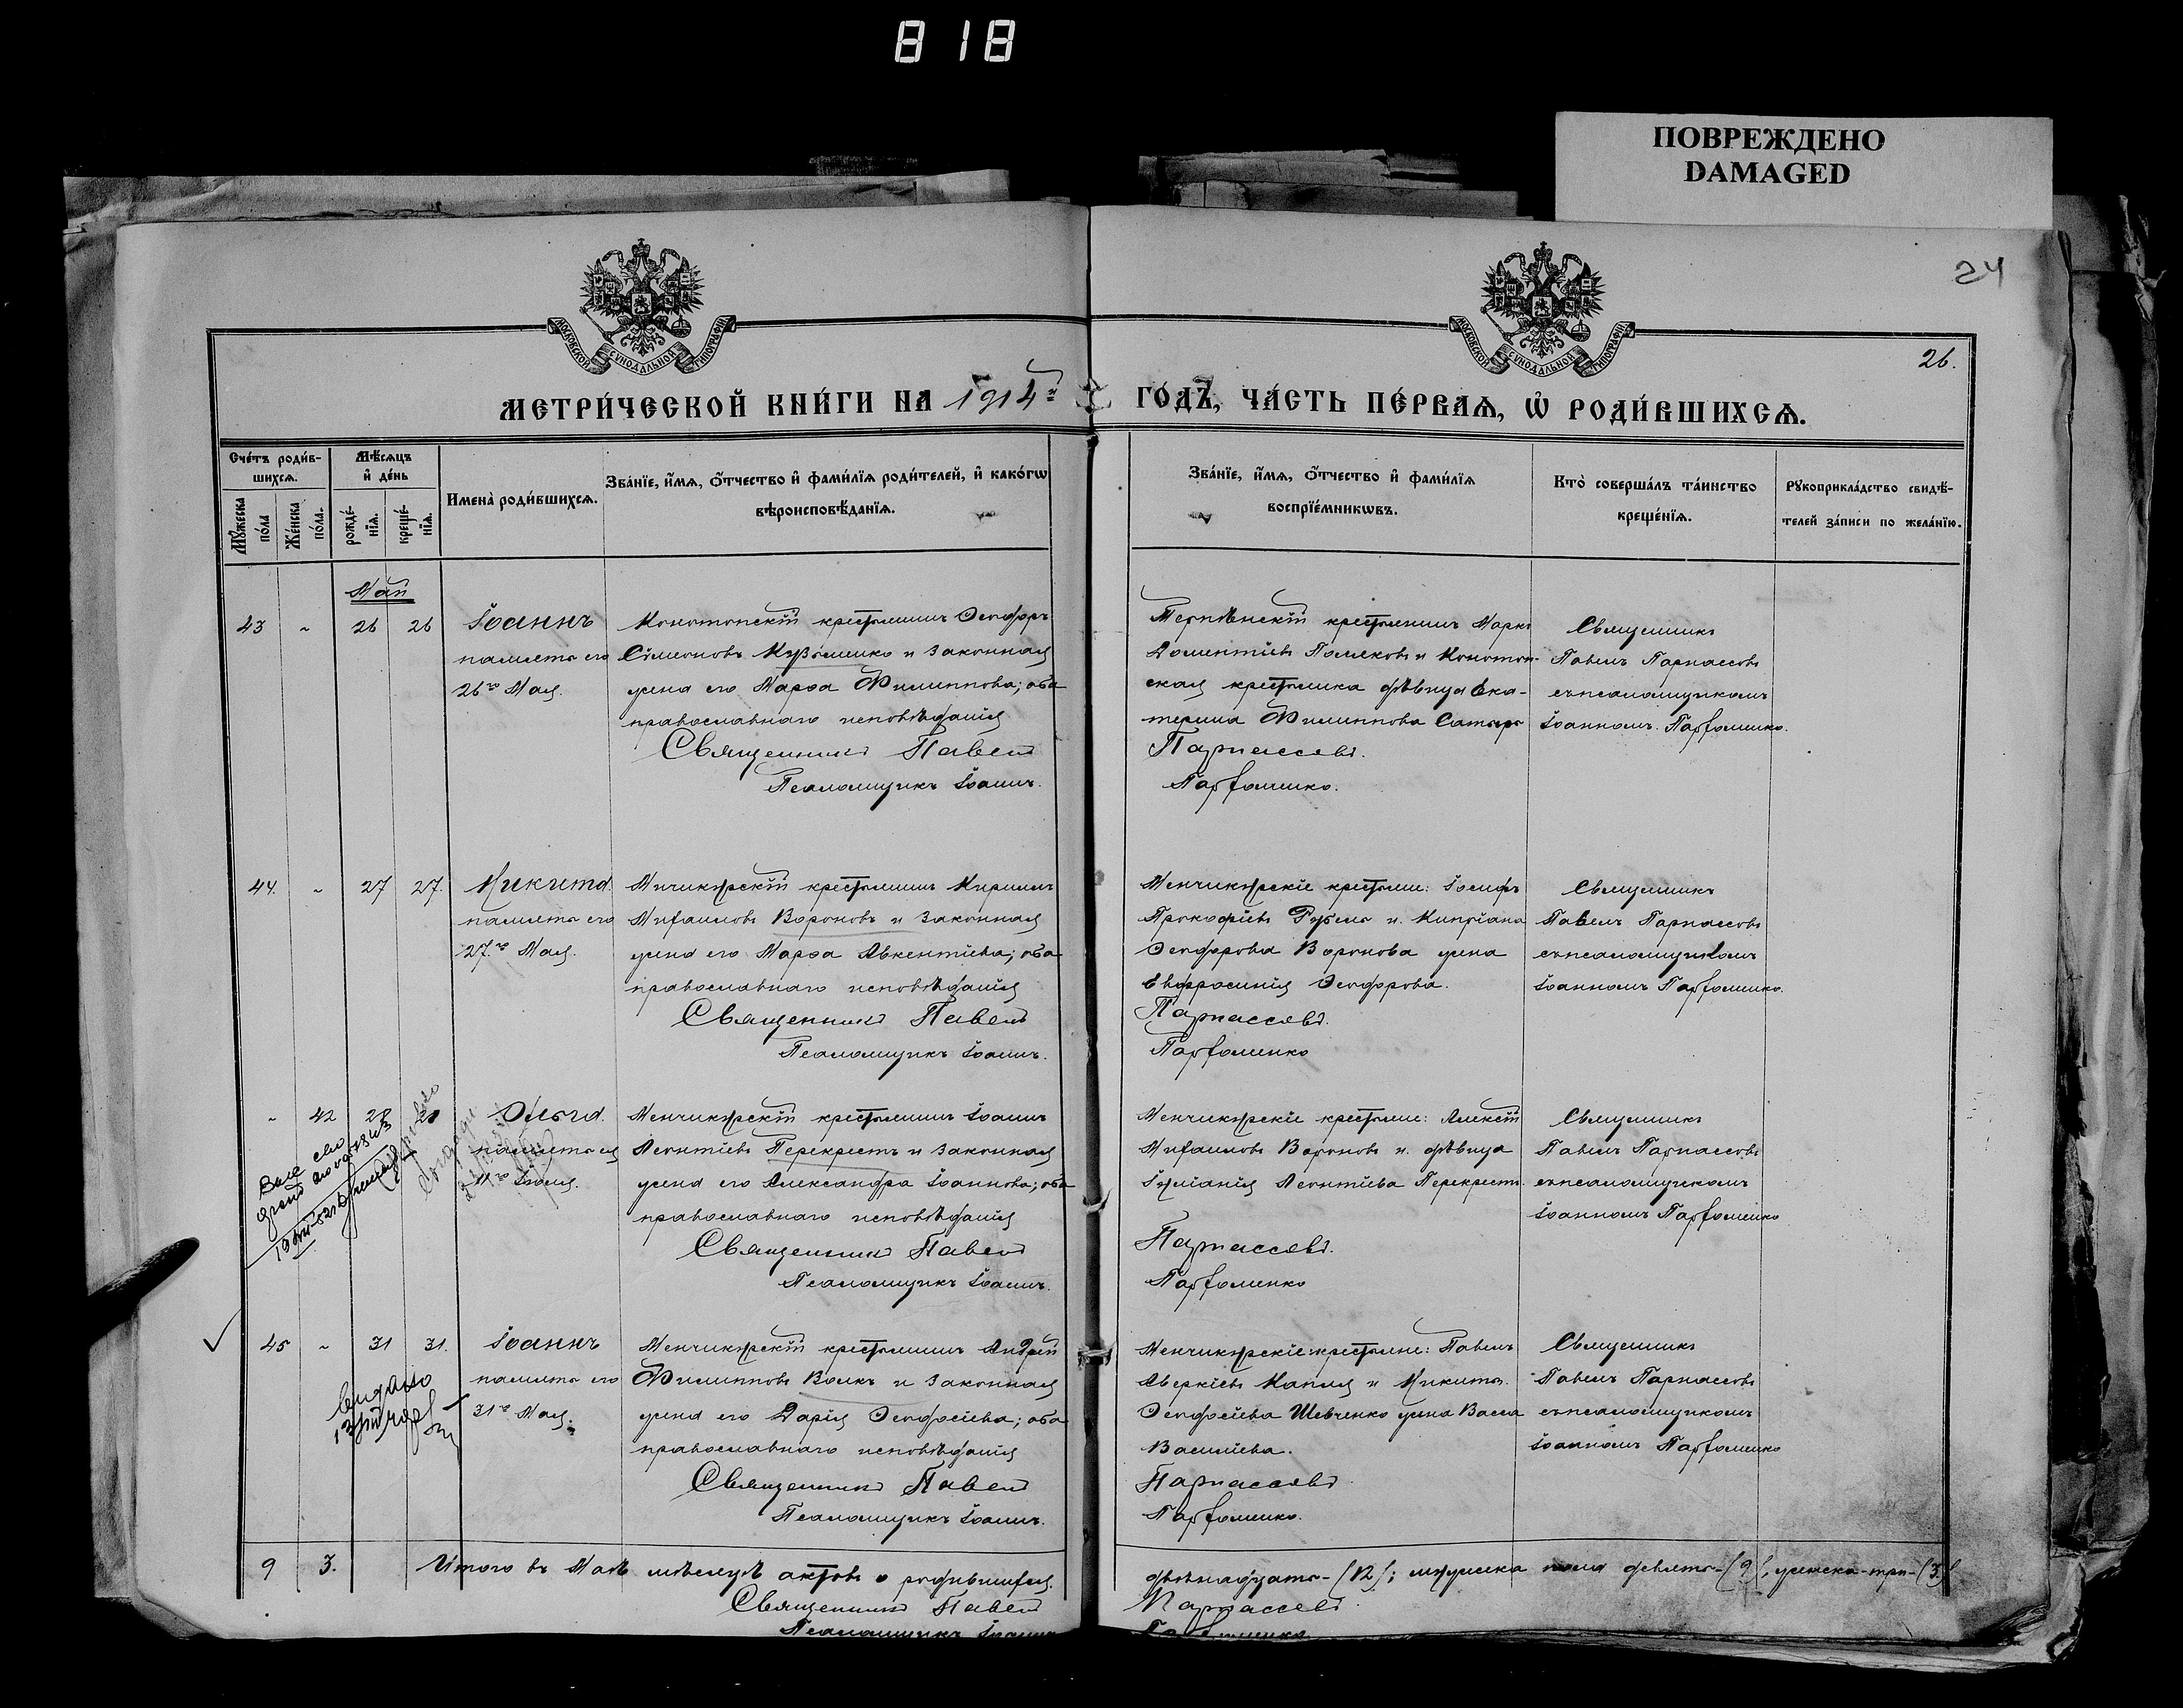 818
ПОВРЕЖДЕНО
DAMAGED
24
МОСКОВСКОЙ СѴНОДАЛЬНОЙ ТИПОГРАФІИ
МОСКОВСКОЙ СѴНОДАЛЬНОЙ ТИПОГРАФІИ
26.
МЕТРИ́ЧЕСКОЙ КНИ́ГИ НА 1914й ГО́ДЪ, ЧА́СТЬ ПЕ́РВАѦ, Ѡ҆ РОДИ́ВШИХСѦ.
Сче́тъ роди́в-
шихсѧ.
Мꙋ́жеска
по́ла
Же́нска
по́ла.
Мѣ́сѧцъ
и҆ де́нь
рожде́-
нїѧ.
креще́-
нїѧ.
Имена̀ роди́вшихсѧ.
Зва́нїе, и҆́мѧ, ѻ҆́тчество и҆ фами́лїѧ роди́телей, и҆ како́гѡ
вѣроисповѣ́данїѧ.
Зва́нїе, и҆́мѧ, ѻ҆́тчество и҆ фами́лїѧ
воспрїе́мникѡвъ.
Кто̀ соверша́лъ та́инство
креще́нїѧ.
Рꙋкоприкла́дство свидѣ́-
телей за́писи по жела́нїю.
Май
43 „ 26 26
Іоаннъ
память его
26го Мая.
Конотопскій крестьянинъ Ѳеодоръ
Сѵмеоновъ Кузьменко и законная
жена его Марѳа Филиппова; оба
православнаго исповѣданія
Священникъ Павелъ
Псаломщикъ Іоаннъ.
крестьянинъ Марко
Дометіевъ Поляковъ и Конотоп-
ская крестьянка дѣвица Ека-
терина Филиппова
Парнассовъ.
Парфоменко.
Священникъ
Павелъ Парнассовъ
съ псаломщикомъ
Іоанномъ Парфоменко.
44. „ 27 27.
Никита
память его
27го Мая.
крестьянинъ Кириллъ
Михаиловъ Вороновъ и законная
жена его Марѳа Авксентіева; оба
православнаго исповѣданія
Священникъ Павелъ
Псаломщикъ Іоаннъ.
Менчикурскіе крестьяне: Іосифъ
Прокофіевъ и Кипріана
Ѳеодорова Воронова жена
Евфросинія Ѳеодорова.
Парнассовъ.
Парфоменко
Священникъ
Павелъ Парнассовъ
съ псаломщикомъ
Іоанномъ Парфоменко.
„ 42 28 28
Ольга.
память ея
11го Іюля.
Менчикурскій крестьянинъ Іоаннъ
Леонтіевъ Перекрестъ и законная
жена его Александра Іоаннова; оба
православнаго исповѣданія
Священникъ Павелъ
Псаломщикъ Іоаннъ.
Менчикурскіе крестьяне: Алексій
Михаиловъ Вороновъ и дѣвица
Іуліанія Леонтіева Перекрестъ.
Парнассовъ.
Парфоменко
Священникъ
Павелъ Парнассовъ
съ псаломщикомъ
Іоанномъ Парфоменко
45 „ 31 31.
Іоаннъ
память его
31го Мая.
Менчикурскій крестьянинъ Андрей
Филипповъ Волкъ и законная
жена его Дарія Ѳеодосіева; оба
православнаго исповѣданія
Священникъ Павелъ
Псаломщикъ Іоаннъ.
Менчикурскіе крестьяне: Павелъ
Аверкіевъ Капля и Никиты
Ѳеодосіева Шевченко жена Васса
Василіева.
Парнассовъ
Парфоменко.
Священникъ
Павелъ Парнассовъ
съ псаломщикомъ
Іоанномъ Парфоменко
9 3. Итого въ Маѣ мѣсяцѣ актовъ о родившихся двѣнадцать-(12); мужеска пола девять-(9), женска-три-(3)
Священникъ Павелъ Парнассовъ
Псаломщикъ Іоаннъ Парфоменко